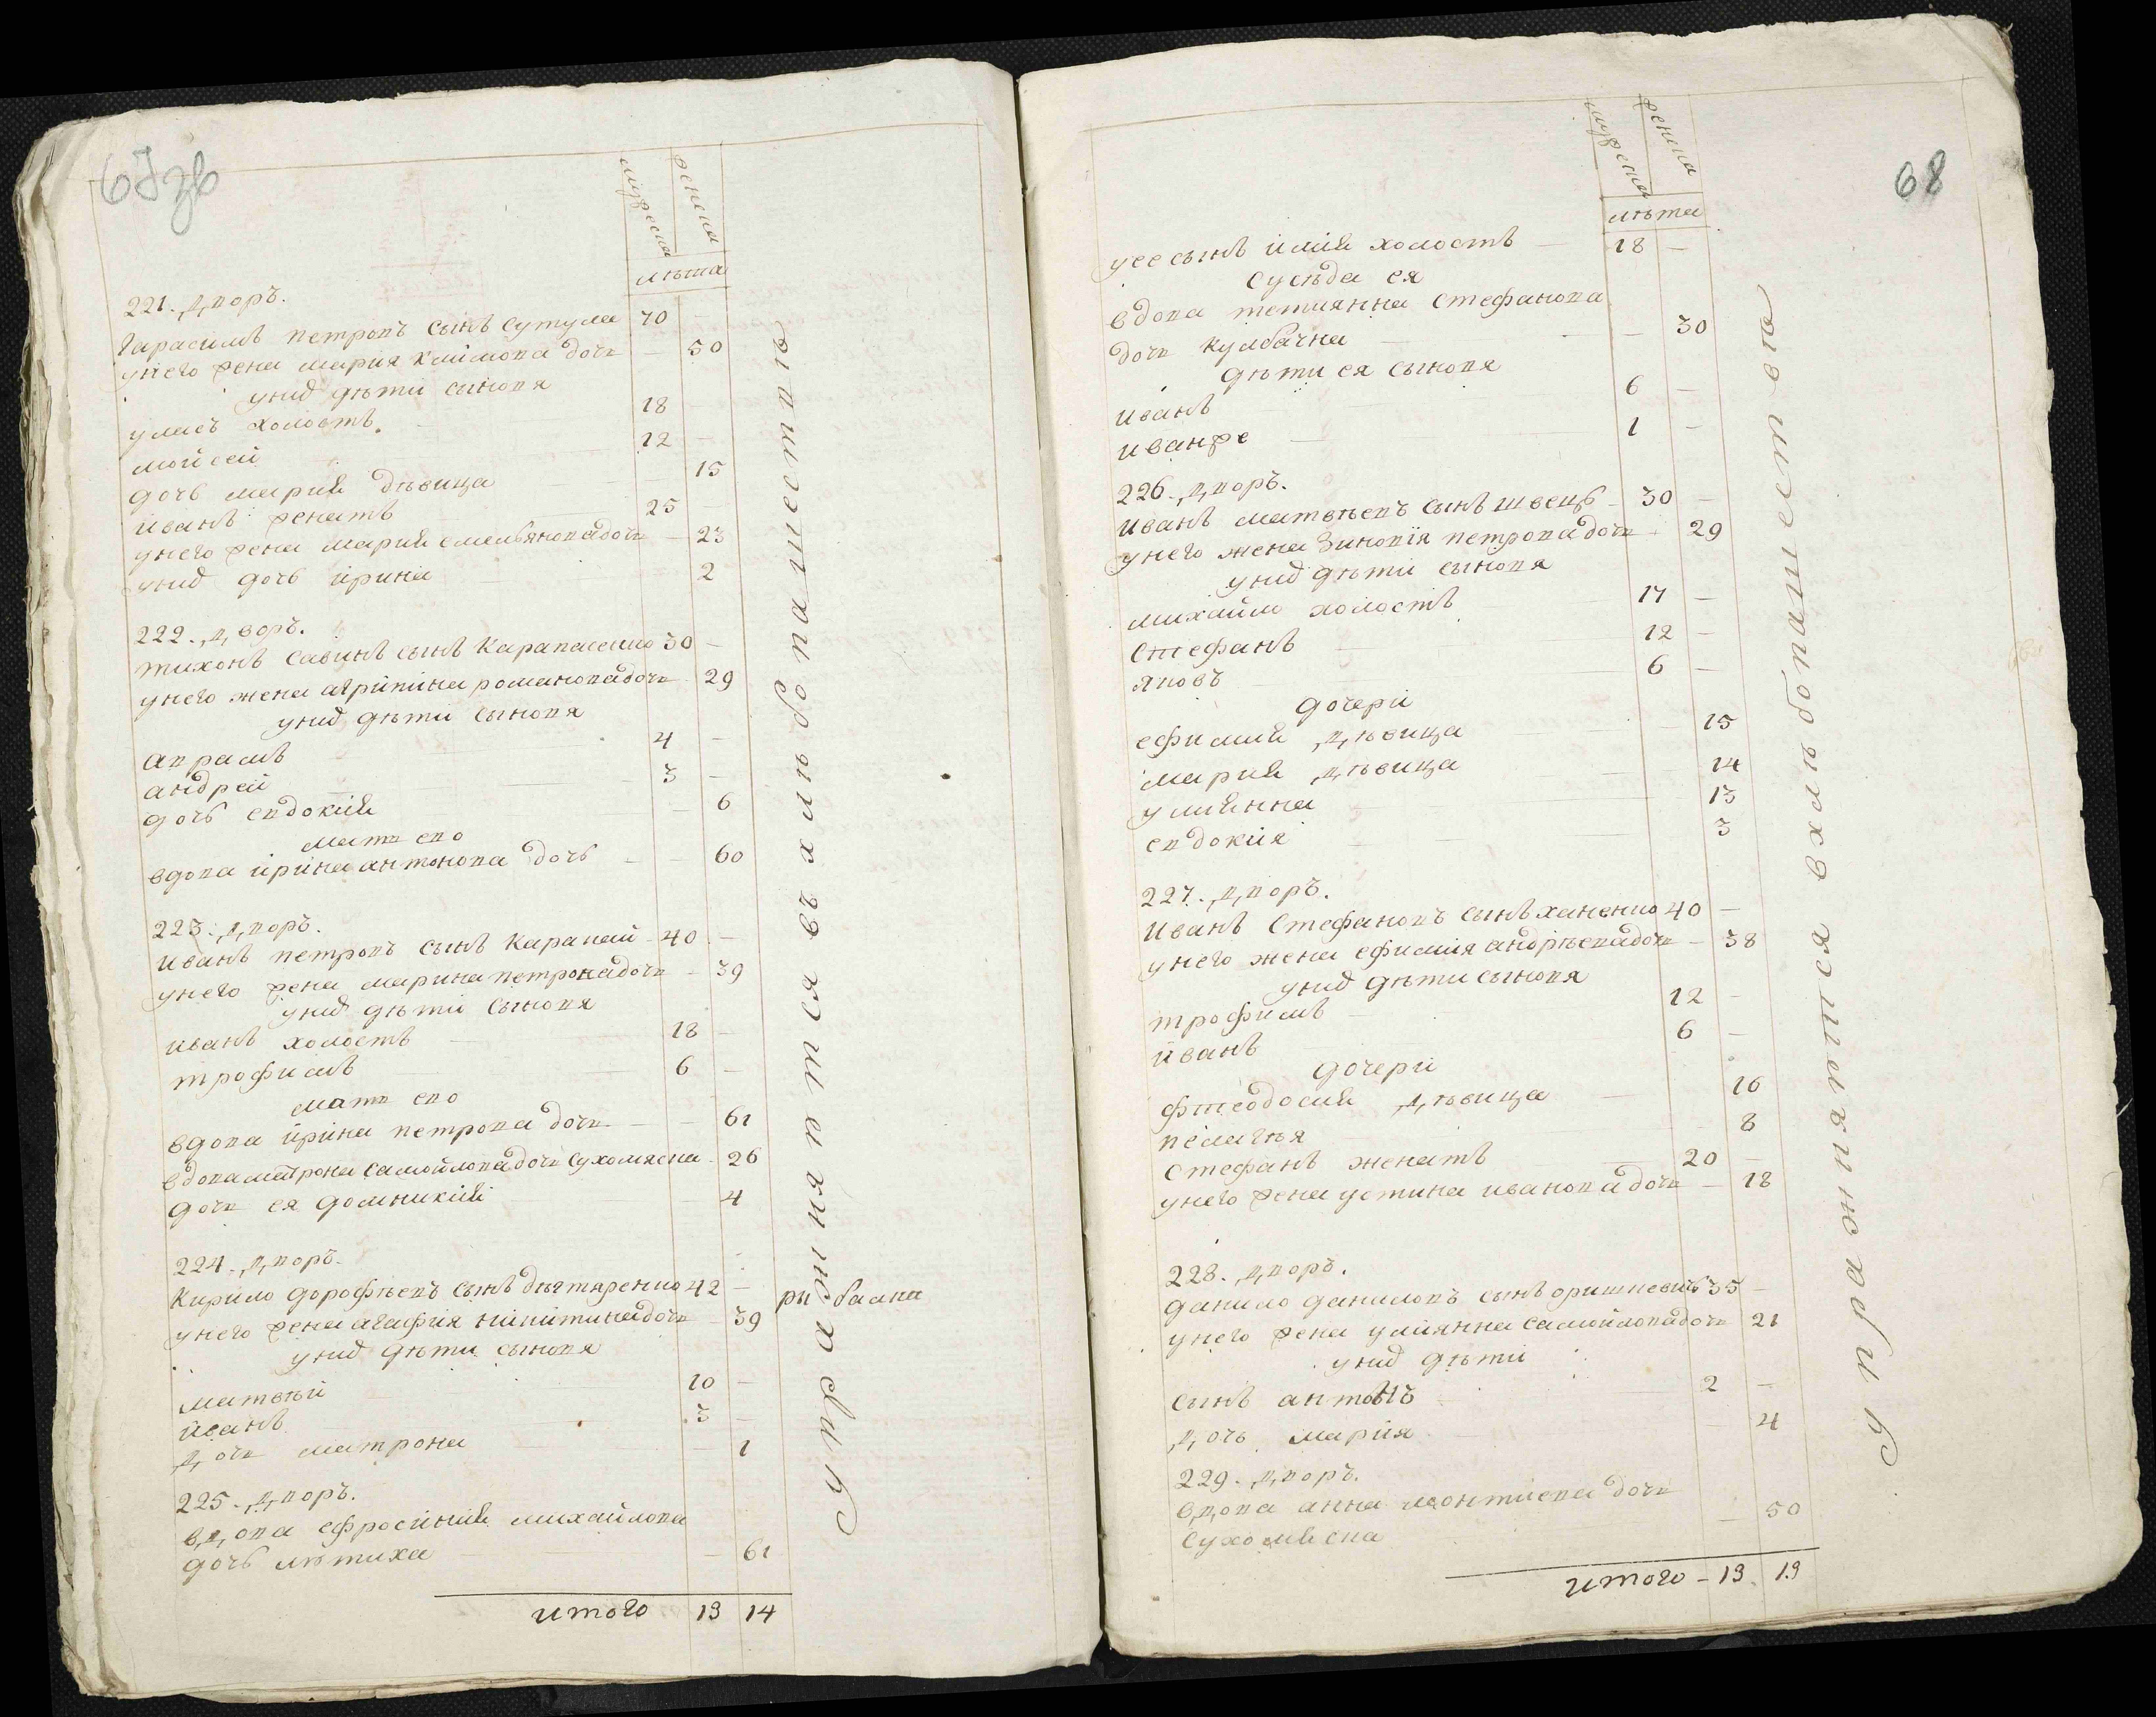 67зв
мужеска
женска
лѣта
221. дворъ.
Гарасимъ петровъ сынъ Сутула 70 -
унего жена мария климова дочь - 50
унихъ дѣти сыновя
уласъ холостъ 18 -
мойсей 12 -
дочь мария дѣвица - 15
иванъ женатъ 25 -
унего жена мария емельянова дочь - 23
унихъ дочь ирина - 2
222. дворъ.
тихонъ савинъ сынъ Карапаченко 30 -
унего жена агрипина романова дочь - 29
унихъ дѣти сыновя
аврамъ 4 -
андрей 3 -
дочь евдокия - 6
мать ево
вдова ирина антонова дочь - 60
223. дворъ.
иванъ петровъ сынъ Карапай 40 -
унего жена марина петрова дочь - 39
унихъ дѣти сыновя
иванъ холостъ 18 -
трофимъ 6 -
мать ево
вдова ирина петрова дочь - 61
вдова матрона самойлова дочь сухомясна - 26
дочь ея домникия - 4
224. дворъ.
Кирило дорофѣевъ сынъ дѣгтяренко 42 -
унего жена агафия никитина дочь - 39
унихъ дѣти сыновя
матвѣй 10 -
иванъ 3 -
дочь матрона 1
225. дворъ.
вдова ефросиния михайлова
дочь лѣтиха - 61
итого 13 14
упражняются въ хлѣбопашествѣ
рыбалка
68
мужеска
женска
лѣта
унее сынъ илия холостъ 18 -
сусѣда ея
вдова тетиянна Стефанова
дочь кулбачна - 30
дѣти ея сыновя
иванъ 6 -
иванже 1 -
226. дворъ.
иванъ матвѣевъ сынъ швецъ 30 -
унего жена Зиновія петрова дочь - 29
унихъ дѣти сыновя
михайло холостъ 17 -
Стефанъ 12 -
яковъ 6 -
дочери
ефимия дѣвица 15
мария дѣвица 14
улиянна 13
евдокия 3
227. дворъ.
иванъ Стефановъ сынъ ханенко 40 -
унего жена ефимия андрѣева дочь - 38
унихъ дѣти сыновя
трофимъ 12 -
иванъ 6 -
дочери
фтеодосия дѣвица 16
пелагѣя 8
Стефанъ женатъ 20 -
унего жена устина иванова дочь - 18
228. дворъ.
данило даниловъ сынъ оришневъ 35 -
унего жена улиянна самойлова дочь 21
унихъ дѣти
сынъ антонъ 2 -
дочь мария - 4
229. дворъ.
вдова анна леонтиева дочь
сухомясна - 50
итого - 13 13
упражняются вхлѣбопашествѣ